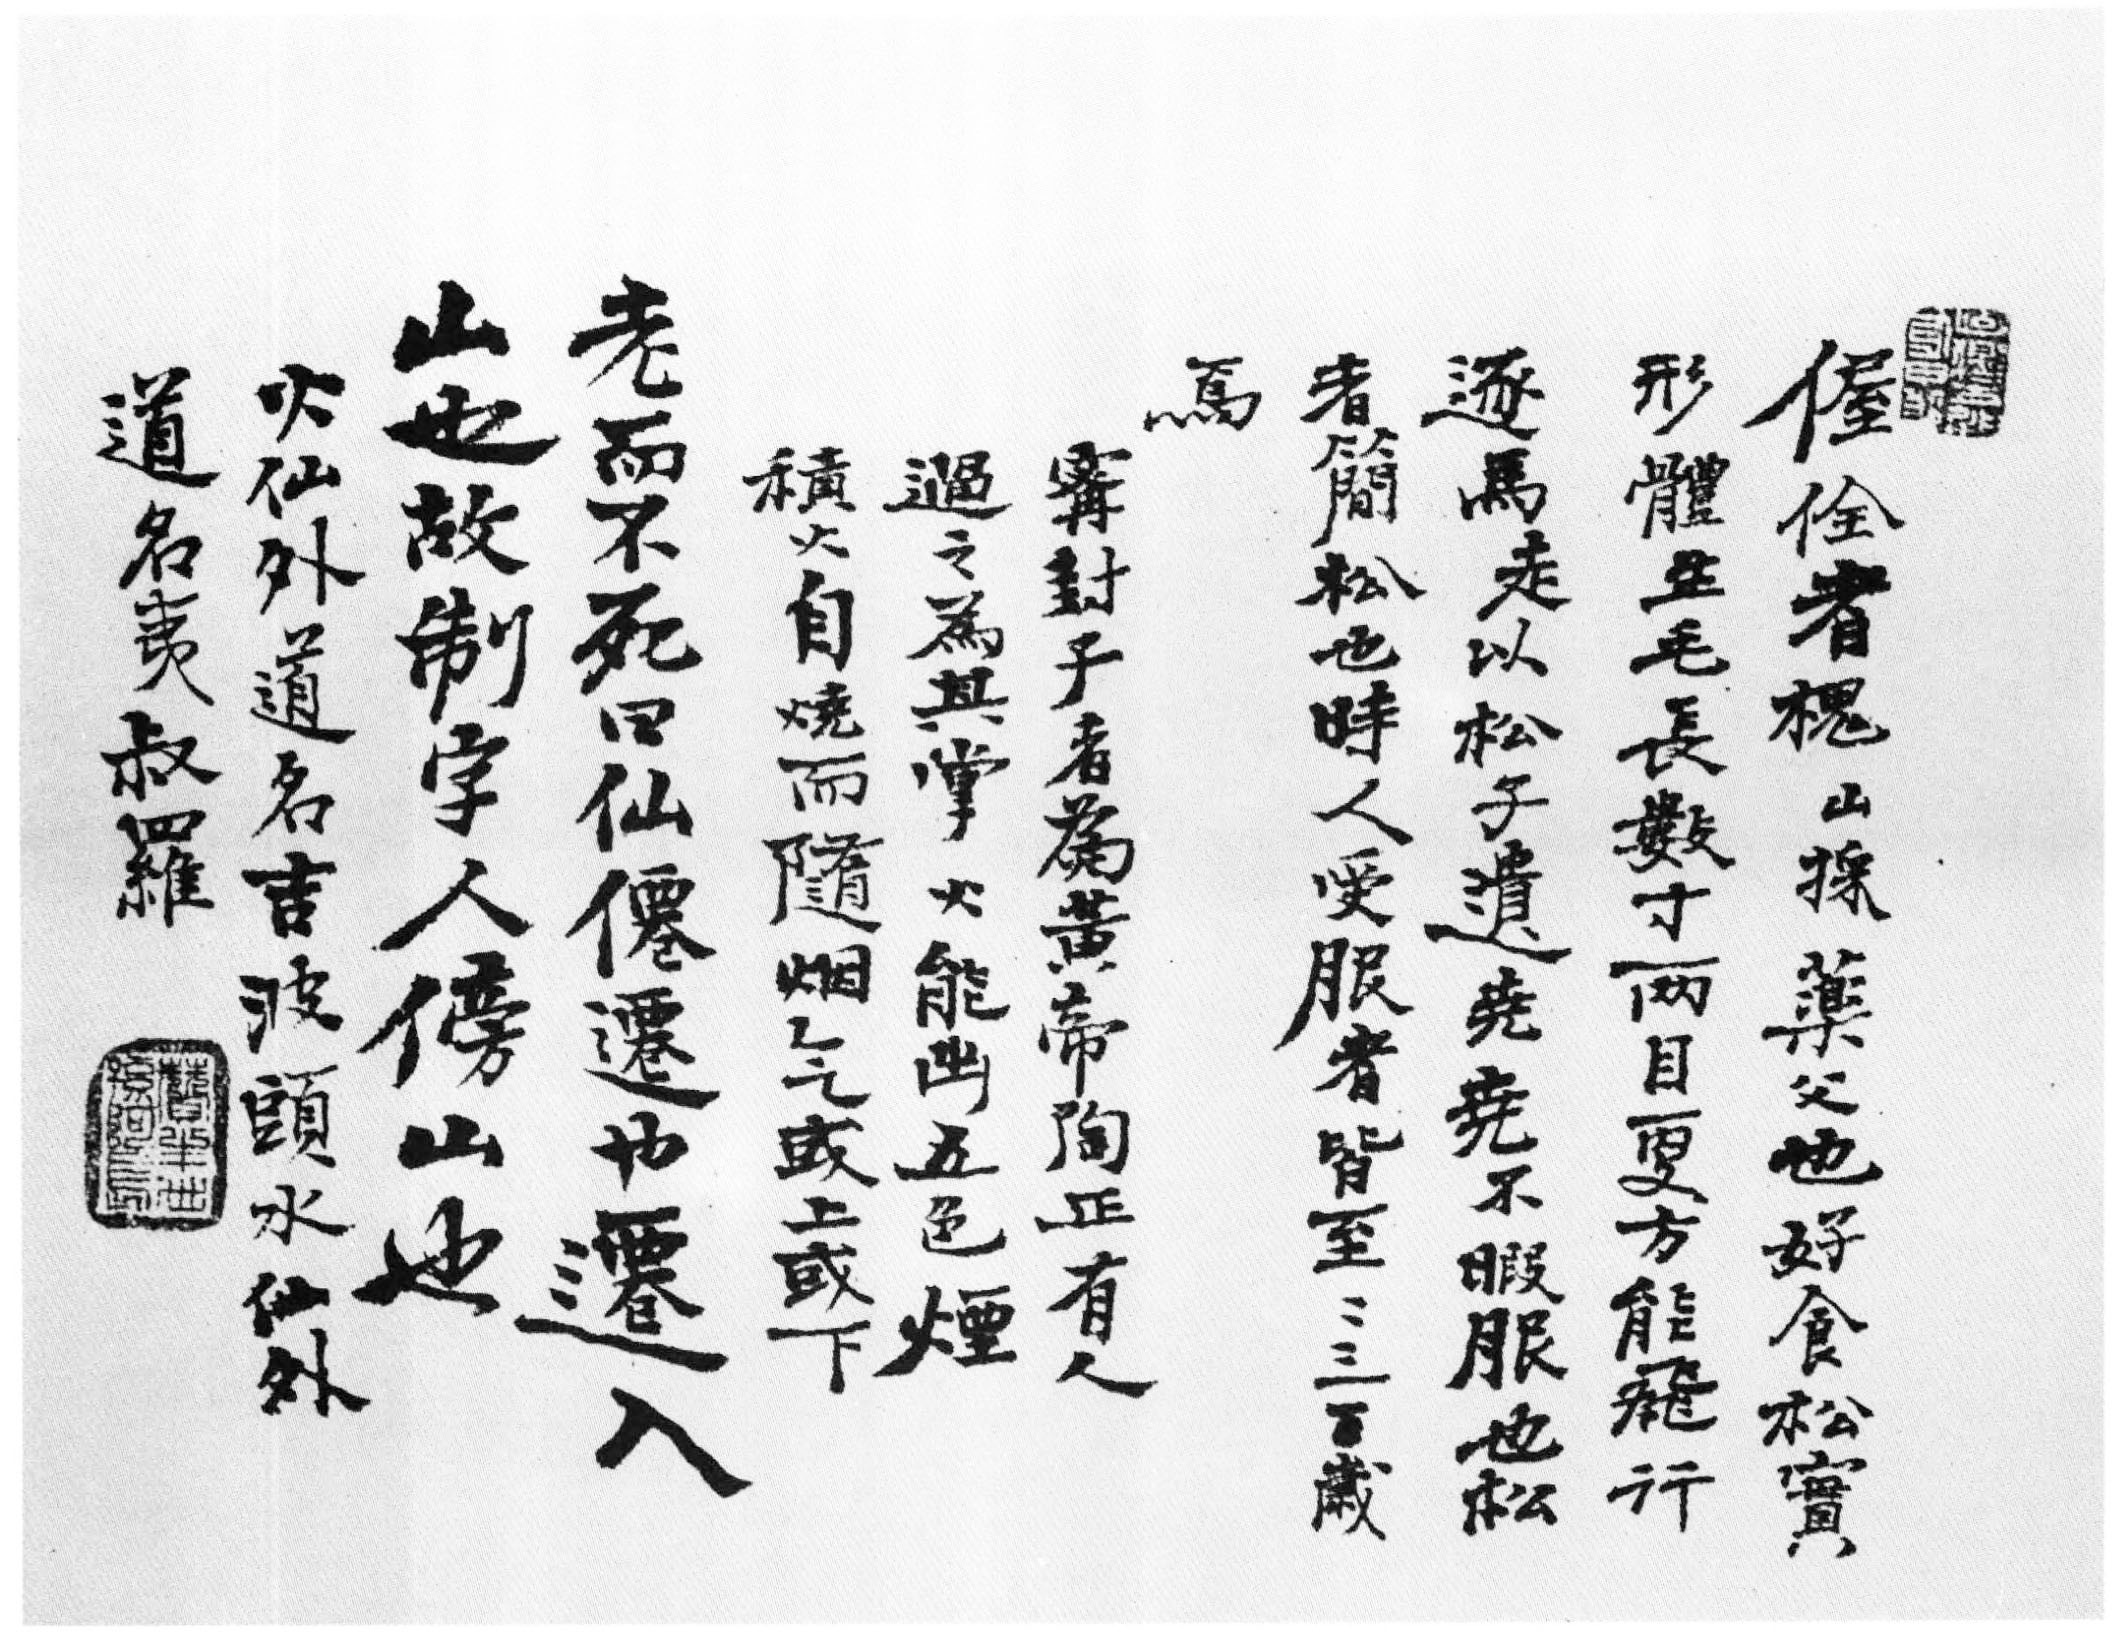 偓佺者槐山採薬父也好食松實
形體生毛長數寸兩目更方能飛行
逐馬走以松子遺堯堯不暇服也松
者簡松也時人受服者皆至二三百歲
焉
甯封子者為黃帝陶正有人
過之為其掌火能出五色煙
積火自燒而隨烟气或上或下
老而不死曰仙僊遷也遷入
山也故制字人傍山也
火仙外道名吉波頭水仙外
道名夷叔羅